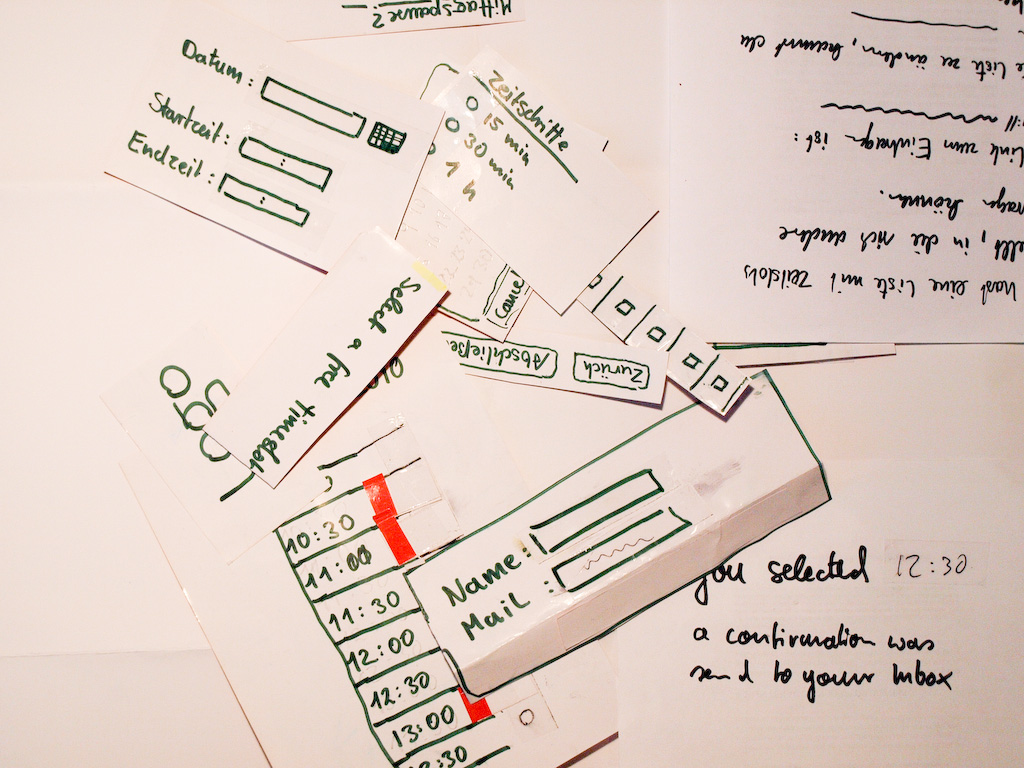 Mittagspause?
Datum:
Startzeit:
Endzeit:
Zeitschritte
15 min
30 min
1 h
Cancel
Select a free timeslot
Abschließe
Zurück
10:30
11:00
11:30
12:00
12:30
13:00
Name:
Mail:
you selected 12:30
a confirmation was
send to your Inbox
hast eine Liste mit Zeitslots
in die sich andere
können.
Link zum Eintragen ist:
Liste zu ändern, kannst du